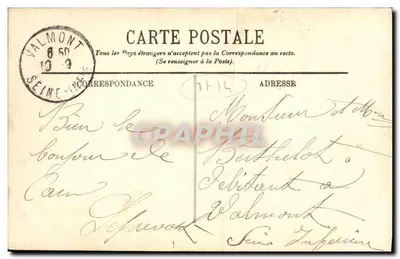 CARTE POSTALE
Tous les Pays étrangers n'acceptent pas la Correspondance au recto.
(Se renseigner à la Poste).
VALMONT
6 50
10 -9
SEINE-INF
CORRESPONDANCE
ADRESSE
Bien le
bonjour de
Caen
Monsieur et Mme
Berthelot
Débitant à
Valmont
Seine Inférieure
CARTE-POSTALE
GRAPHIL